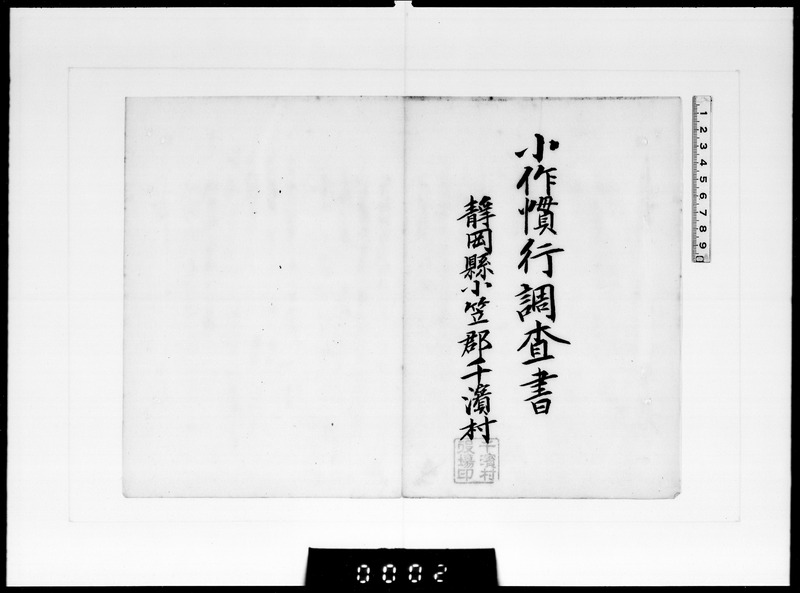 小作慣行調査書
静岡縣小笠郡千濱村
千濱村
役場印
1 2 3 4 5 6 7 8 9
0002